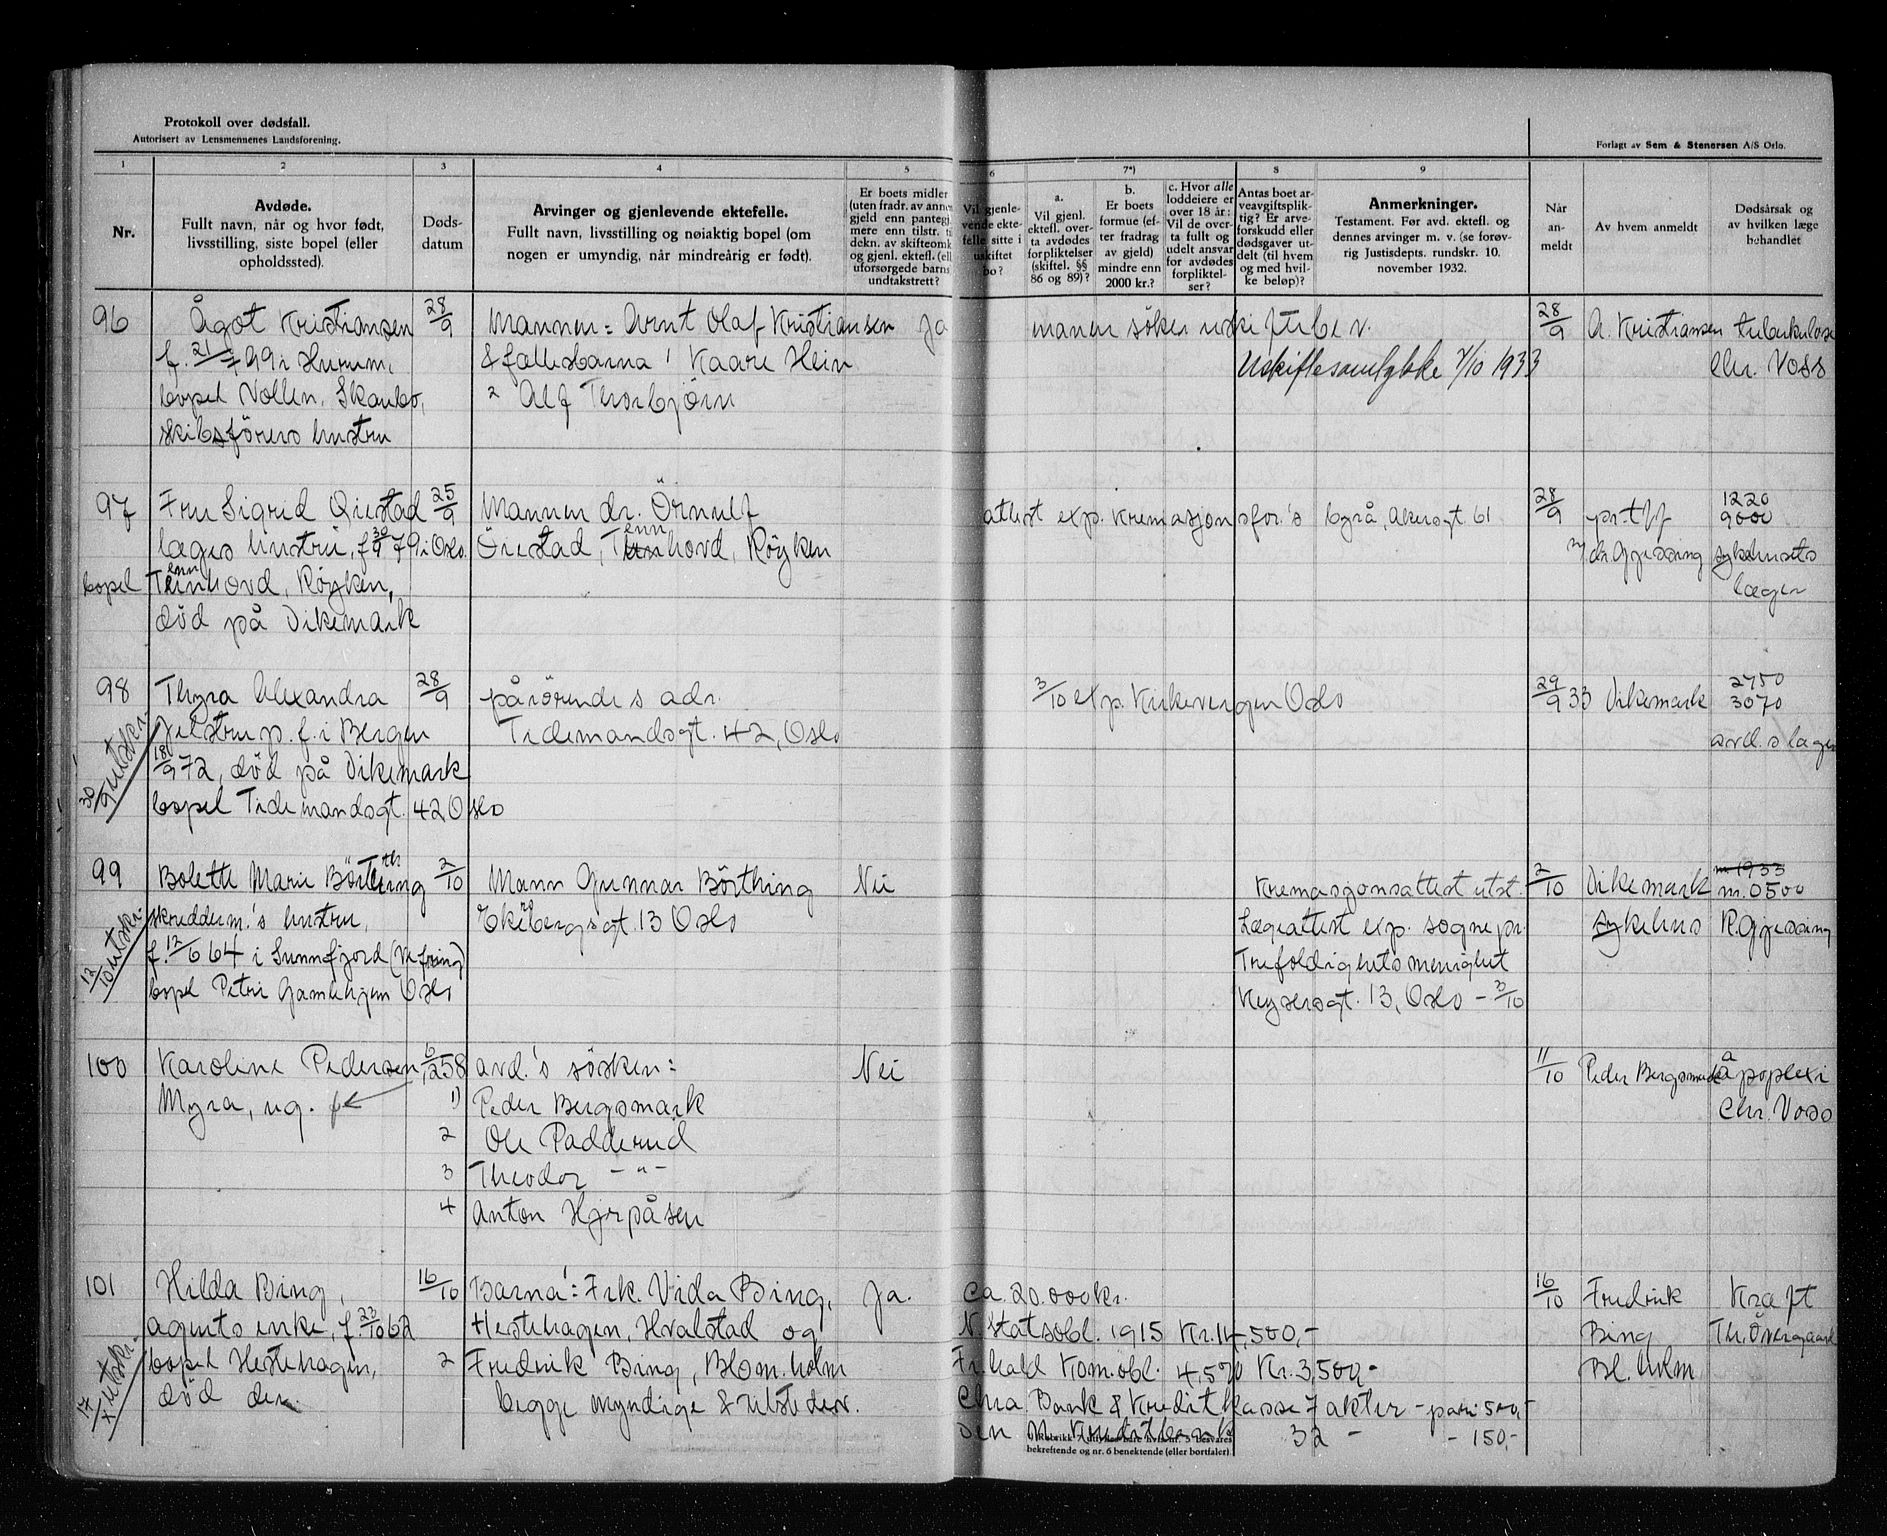 Protokoll over dødsfall.
Autorisert av Lensmennenes Landsforening.
Forlagt av Sem & Stenersen A/S Oslo.
1 2 3 4 5 6 7*) 8 9
Nr.
Avdøde.
Fullt navn, når og hvor født,
livsstilling, siste bopel (eller
opholdssted).
Døds-
datum
Arvinger og gjenlevende ektefelle.
Fullt navn, livsstilling og nøiaktig bopel (om
nogen er umyndig, når mindreårig er født).
Er boets midler
(uten fradr. av annen
gjeld enn pantegj
mere enn tilstr. ti
dekn. av skifteomk
og gjenl. ektef. (ell
uforsørgede barns
undtakstrett?
Vil gjenle-
vende ekte-
felle sitte i
uskiftet
bo?
a.
Vil gjenl.
ektefl. over-
ta avdødes
forpliktelser
(skiftel. §§
86 og 89)?
b.
Er boets
formue (ef-
ter fradrag
av gjeld)
mindre enn
2000 kr.?
c. Hvor alle
loddeiere er
over 18 år:
Vil de over-
ta fullt og
udelt ansvar
for avdødes
forpliktel-
ser?
Antas boet ar-
veavgiftsplik-
tig? Er arve-
forskudd eller
dødsgaver ut-
delt (til hvem
og med hvil-
ke beløp)?
Anmerkninger.
Testament. Før avd. ektefl. og
dennes arvinger m. v. (se forøv-
rig Justisdepts. rundskr. 10.
november 1932.
Når
an-
meldt
Av hvem anmeldt
Dødsårsak og
av hvilken læge
behandlet
96 Ågot Kristiansen 28/9 Mannen: Arnt Olaf Kristiansen ja manen söker uskiftebev. 28/9 A. Kristiansen tuberkulose
f. 21/7 99 i Hurum, & fællesbarna 1 Kaare Hein Uskiftesamtykke 7/10 1933 Chr. Voss
bopel Vollen, Skaubo, 2 Alf Thorbjörn
skibsförers hustru
97 Fru Sigrid Öiestad 25/9 Mannen dr. Örnulf attest exp. Kremasjonsfor's byrå, Akersgt. 61 28/9 pr. tlf 1220 9000
læges hustru, f. 30/9 79 i Oslo. Öiestad, Tennhovd, Röyken v/ dr. Gjessing sykehusets
bopel Tennhovd, Röyken, læger
död på Dikemark
98 Thyra Alexandra 28/9 pårörendes adr. 3/10 exp. Kirkevergen Oslo 29/9 33 Dikemark 2750 3070
Jelstrup. f. i Bergen Tidemandsgt. 42, Oslo avd.s læge
18/9 72, död på Dikemark
bopel Tidemandsgt. 42 Oslo
30/9 utskr.
99 Bolette Marie Börthing 2/10 Mann Gunnar Börthing Nei Kremasjonsattest utst. 2/10 Dikemark m. 1933 m. 0500
skredderm.'s hustru, Ekebergsgt. 13 Oslo Lægeattest exp. sognepr. sykehus R. Gjessing
f. 12/6 64 i Sunnfjord (Vefring) Trefoldighetsmenighet
bopel Petri Gamlehjem Oslo Keysersgt. 13, Oslo - 3/10
12/10 utskr.
100 Karoline Pedersen 6/12 58 avd.'s sösken: Nei 11/10 Peder Bergsmark apoplexi
Myra, ug. f 1) Peder Bergsmark Chr. Voss
2 Ole Padderud
3 Theodor - " -
4 Anton Hjerpåsen
101 Hilda Bing, 16/10 Barna: 1 Frk. Vida Bing, ja. ca. 20.000 kr. 16/10 Fredrik Kræft
agents enke, f. 23/10 62 Hestehagen, Hvalstad og N. Statsobl. 1915 Kr. 14,500,- Bing Th. Övergaard
bopel Hestehagen, 2 Fredrik Bing, Blom.holm Fr.hald Kom.obl. 4,5% Kr. 3,500,- Bl. holm
död der. begge myndige & tilsteder. Chra. Bank & Kreditkasse 7 aktier - pari 500,-
Den N. Kreditbank 32 - - 150,-
17/x utskr.
bekreftende og nr. 6 benektende (eller bortfaler).